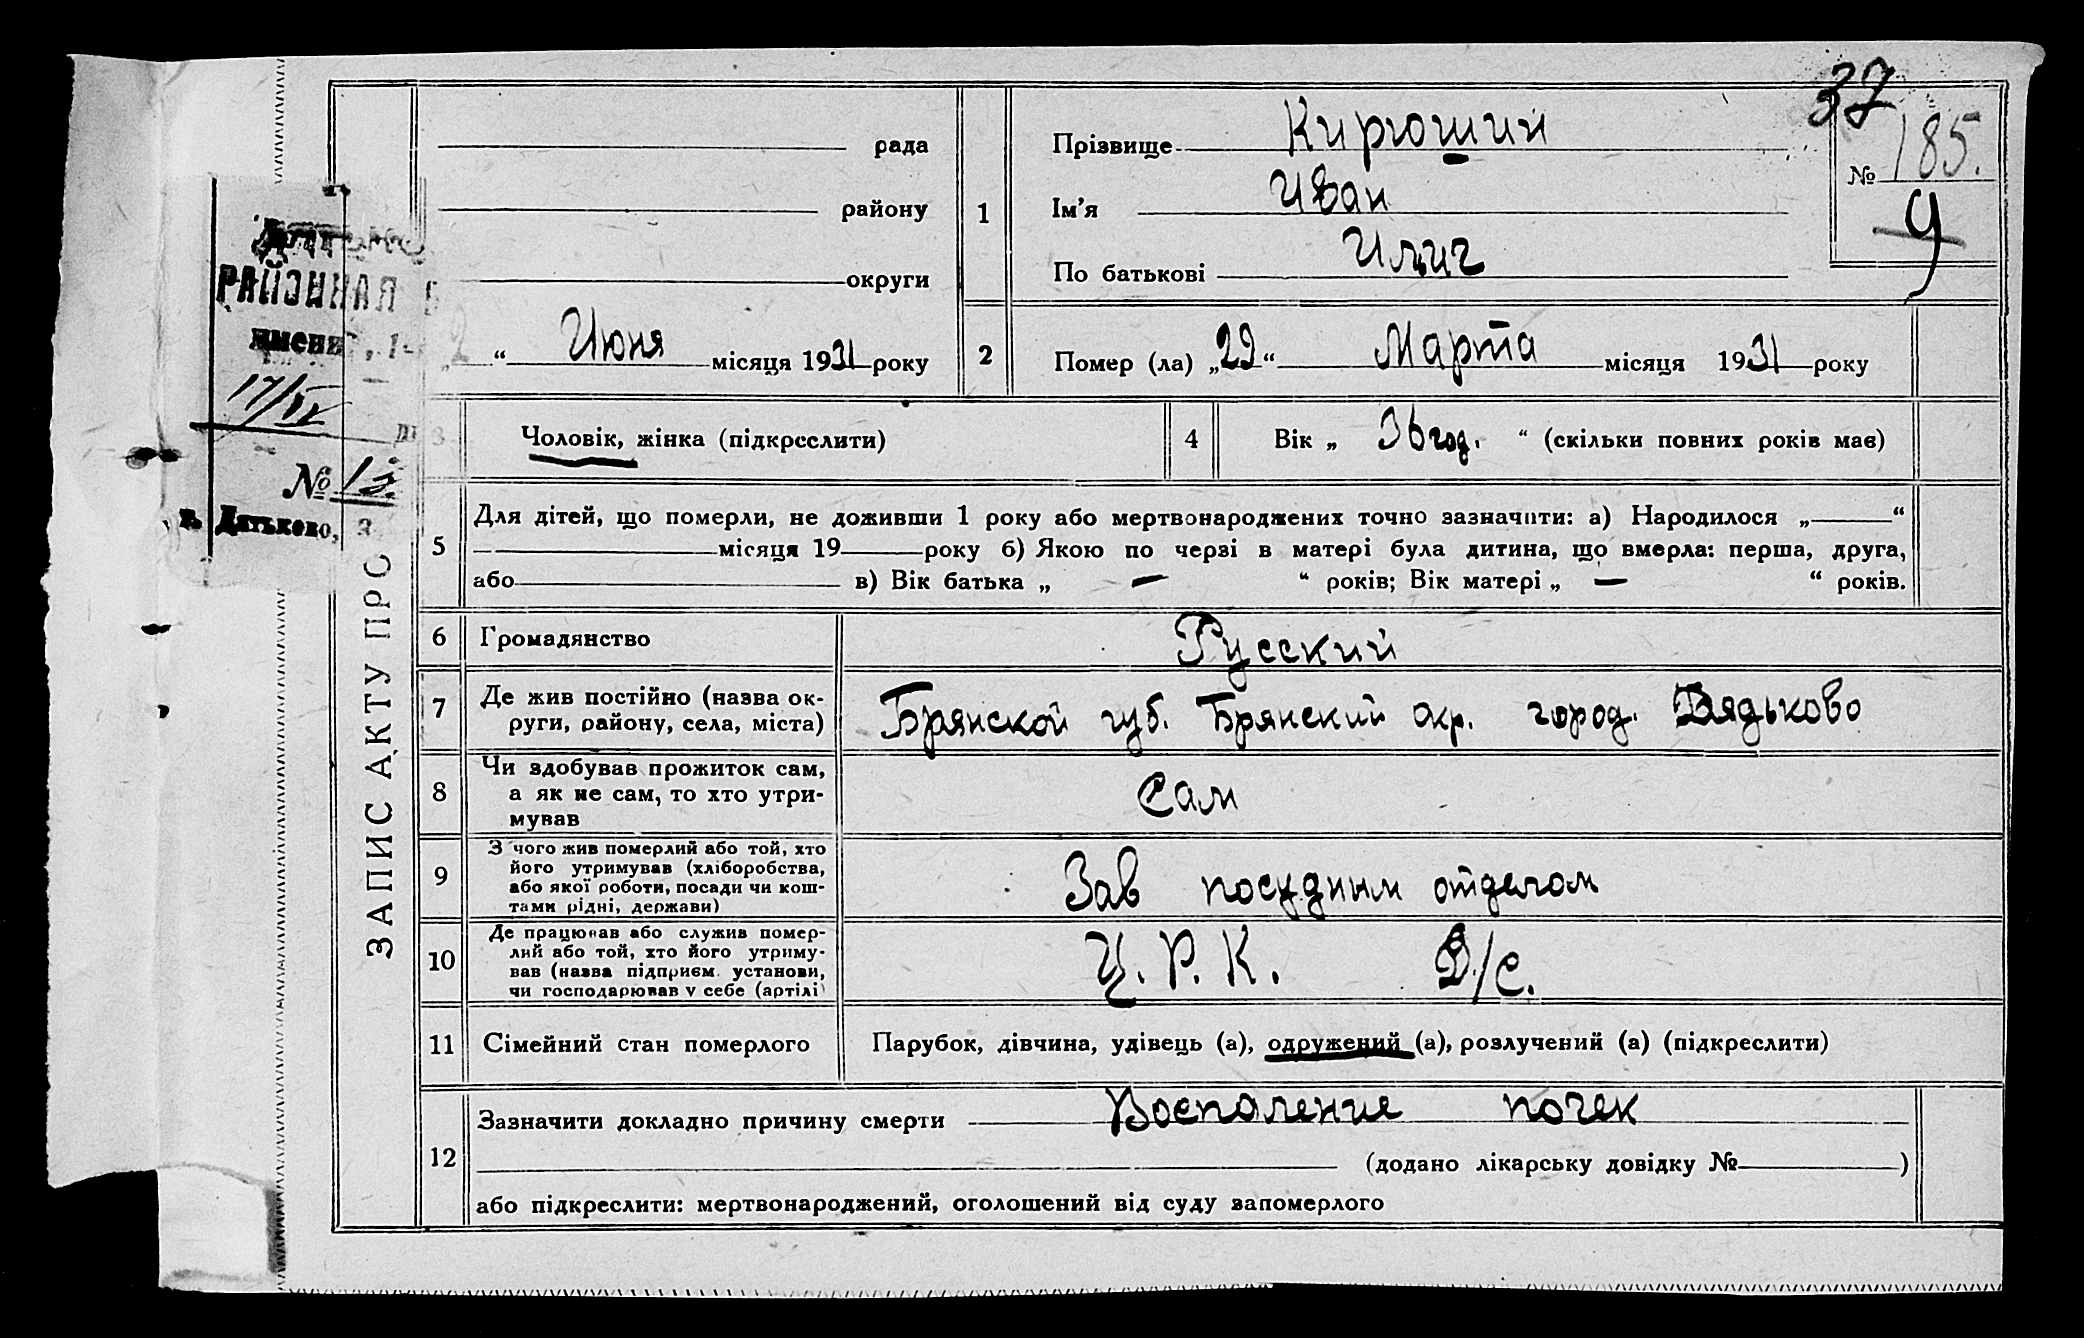 37
рада
району
округи
2 “ Июня місяця 1931 року
1
Прізвище Кирюший
Ім’я Иван
По батькові Илич
№ 185.
9
2
Помер (ла) „29“ Марта місяця 1931 року
РАЙОННАЯ
имени
17/IV
№ 15
г. Дятьково,
ЗАПИС АКТУ ПРО
3
Чоловік, жінка (підкреслити)
4
Вік „ 36 год. “ (скільки повних років має)
5
Для дітей, що померли, не доживши 1 року або мертвонароджених точно зазначити: а) Народилося „ “
місяця 19 року б) Якою по черзі в матері була дитина, що вмерла: перша, друга,
або в) Вік батька „ — “ років; Вік матері „ — “ років.
6
Громадянство
Русский
7
Де жив постійно (назва ок-
руги, району, села, міста)
Брянской губ. Брянский окр. город. Дядьково
8
Чи здобував прожиток сам,
а як не сам, то хто утри-
мував
Сам
9
З чого жив померлий або той, хто
його утримував (хліборобства,
або якої роботи, посади чи кош-
тами рідні, держави)
Зав посудным отделом
10
Де працював або служив помер-
лий або той, хто його утриму-
вав (назва підприєм. установи,
чи господарював у себе (артілі)
Ц. Р. К. Д/с.
11
Сімейний стан померлого
Парубок, дівчина, удівець (а), одружений (а), розлучений (а) (підкреслити)
12
Зазначити докладно причину смерти Воспаление почек
(додано лікарську довідку № )
або підкреслити: мертвонароджений, оголошений від суду запомерлого